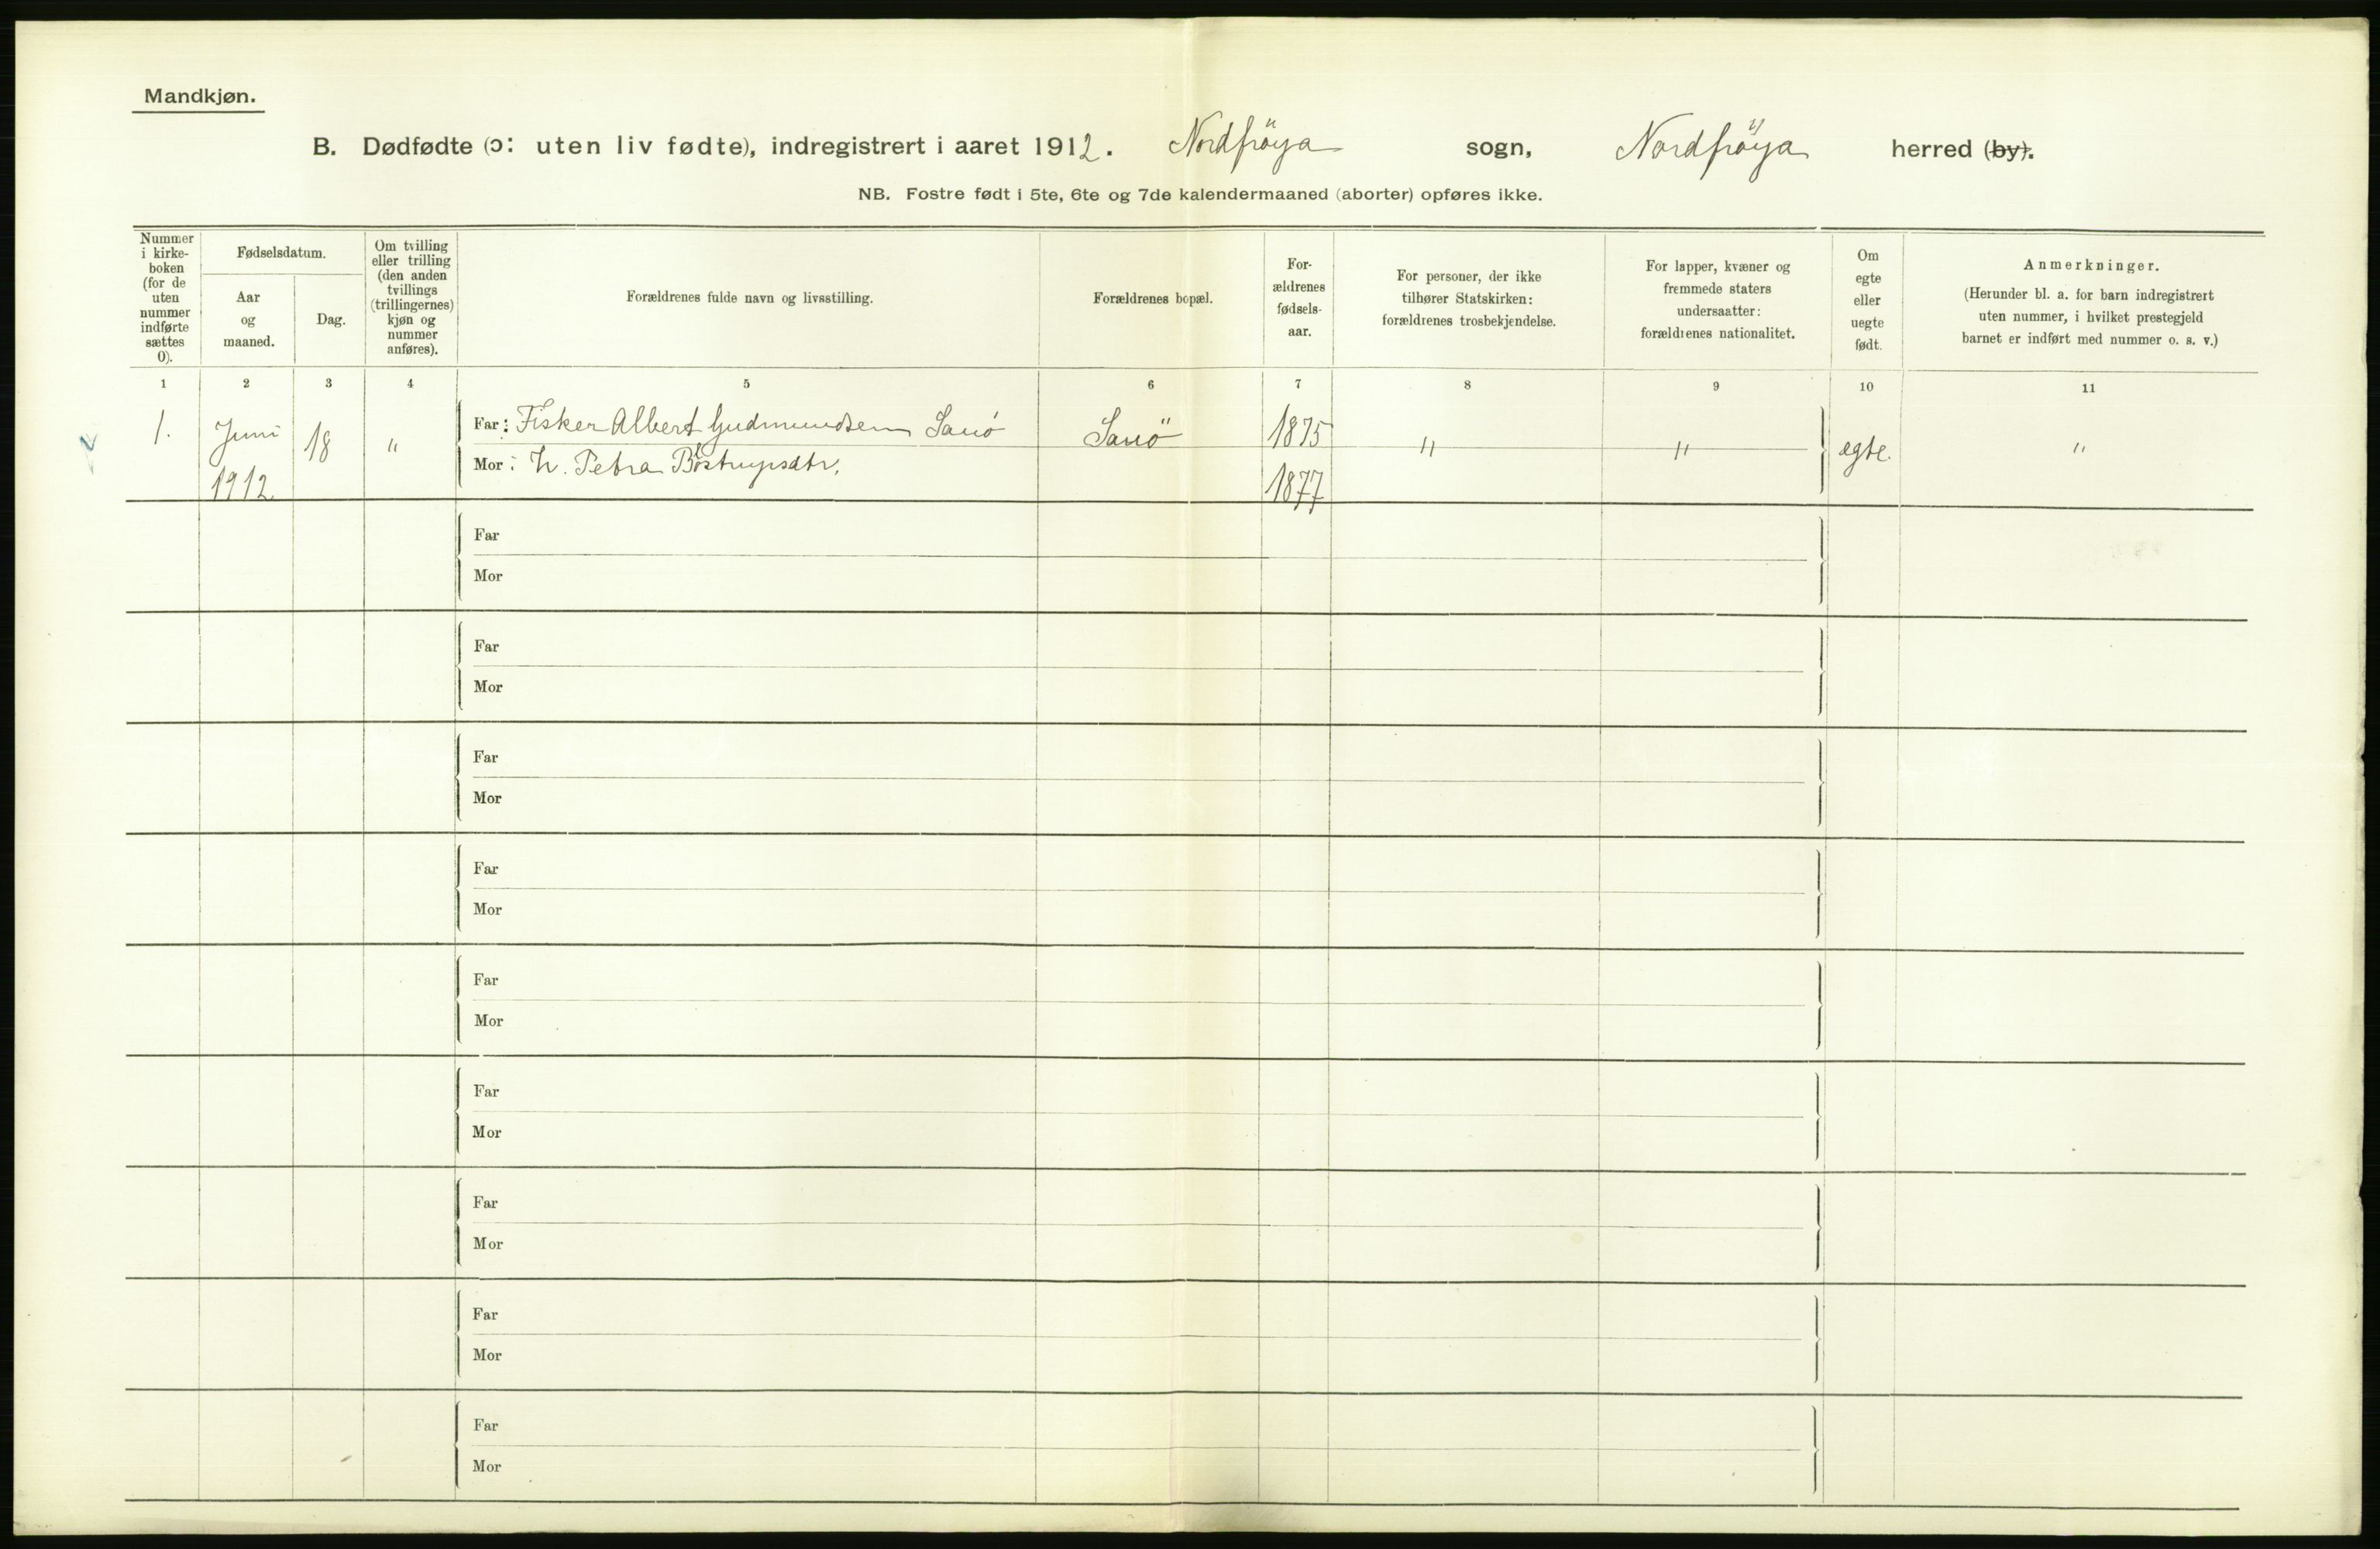 Mandkjøn.
B. Dødfødte (ɔ: uten liv fødte), indregistrert i aaret 1912. Nordfröya sogn, Nordfröya herred (by).
NB. Fostre født i 5te, 6te og 7de kalendermaaned (aborter) opføres ikke.
Nummer
i kirke-
boken
(for de
uten
nummer
indførte
sættes
0).
Fødselsdatum.
Aar
og
maaned.
Dag.
Om tvilling
eller trilling
(den anden
tvillings
(trillingernes)
kjøn og
nummer
anføres).
Forældrenes fulde navn og livsstilling.
Forældrenes bopæl.
For-
ældrenes
fødsels-
aar.
For personer, der ikke
tilhører Statskirken:
forældrenes trosbekjendelse.
For lapper, kvæner og
fremmede staters
undersaatter:
forældrenes nationalitet.
Om
egte
eller
uegte
født.
Anmerkninger.
(Herunder bl. a. for barn indregistrert
uten nummer, i hvilket prestegjeld
barnet er indført med nummer o. s. v.)
1 2 3 4 5 6 7 8 9 10 11
1. Juni 18 " Far: Fisker Albert Gudmundsen Sauö Sauö 1875 " " egte. "
1912 Mor: h. Petra Bostrupsdtr. 1877
Far
Mor
Far
Mor
Far
Mor
Far
Mor
Far
Mor
Far
Mor
Far
Mor
Far
Mor
Far
Mor